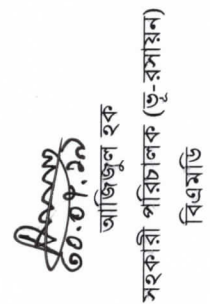 আজিজুল হক
সহকারী পরিচালক (ভূ-রসায়ন)
বিএমডি